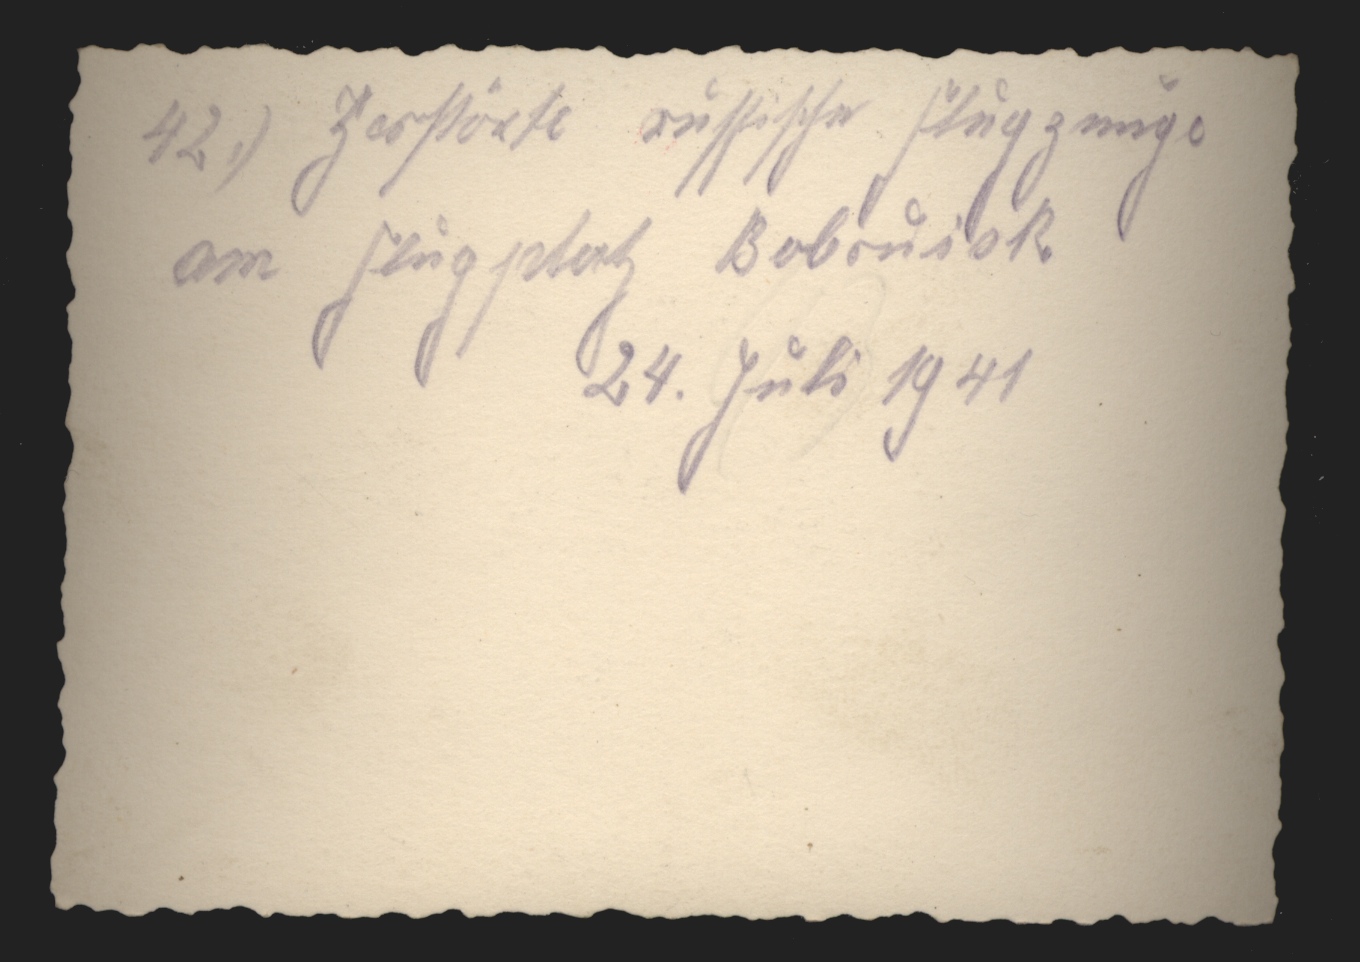 42.) Zerstörte russische Flugzeuge
am Flugplatz Bobruisk
24. Juli 1941